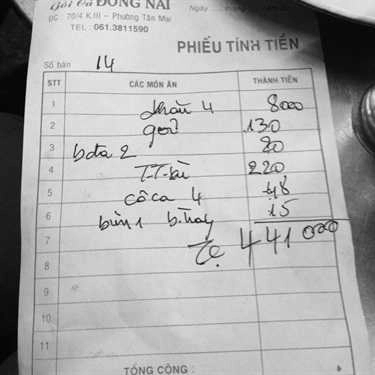 Gỏi Cá ĐỒNG NAI
ĐC : 70/4 K.III - Phường Tân Mai
TEL : 061.3811590
Ngày
PHIẾU TÍNH TIỀN
Số bàn 14
STT CÁC MÓN ĂN THÀNH TIỀN
1 khăn 4 8000
2 gỏi 130
3 bota 2 80
4 220
5 côca 4 48
6 bún 1 15
7 Tc 441 000
8
9
10
11
TỔNG CỘNG :